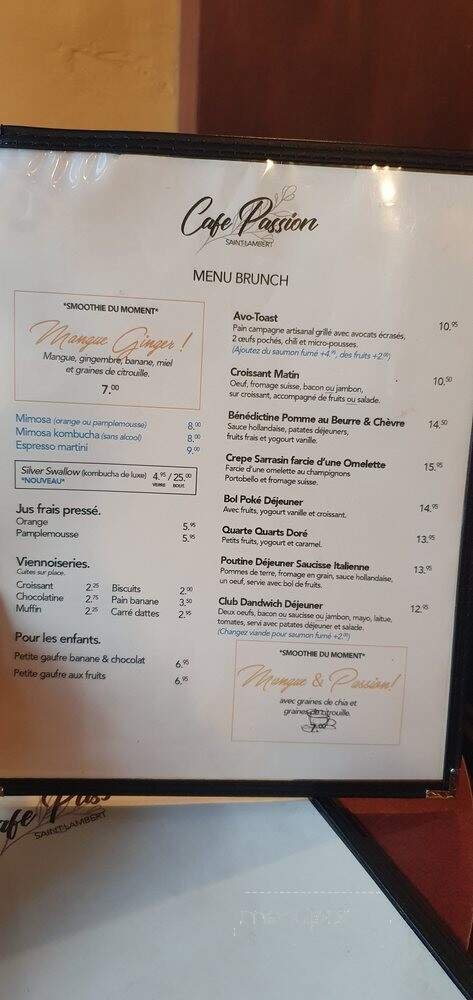 Cafe Passion
SAINT-LAMBERT
MENU BRUNCH
*SMOOTHIE DU MOMENT*
Mangue Ginger !
Mangue, gingembre, banane, miel
et graines de citrouille.
7.00
Mimosa (orange ou pamplemousse) 8.00
Mimosa kombucha (sans alcool) 8.00
Espresso martini 9.00
Silver Swallow (kombucha de luxe) 4.95 / 25.00
*NOUVEAU* VERRE BOUT.
Jus frais pressé.
Orange 5.95
Pamplemousse 5.95
Viennoiseries.
Cuites sur place.
Croissant 2.25 Biscuits 2.00
Chocolatine 2.75 Pain banane 3.50
Muffin 2.25 Carré dattes 2.95
Pour les enfants.
Petite gaufre banane & chocolat 6.95
Petite gaufre aux fruits 6.95
Avo-Toast 10.95
Pain campagne artisanal grillé avec avocats écrasés,
2 œufs pochés, chili et micro-pousses.
(Ajoutez du saumon fumé +4.95, des fruits +2.00)
Croissant Matin 10.50
Oeuf, fromage suisse, bacon ou jambon,
sur croissant, accompagné de fruits ou salade.
Bénédictine Pomme au Beurre & Chèvre 14.50
Sauce hollandaise, patates déjeuners,
fruits frais et yogourt vanille.
Crepe Sarrasin farcie d'une Omelette 15.95
Farcie d'une omelette au champignons
Portobello et fromage suisse.
Bol Poké Déjeuner 14.95
Avec fruits, yogourt vanille et croissant.
Quarte Quarts Doré 13.95
Petits fruits, yogourt et caramel.
Poutine Déjeuner Saucisse Italienne 13.95
Pommes de terre, fromage en grain, sauce hollandaise,
un oeuf, servie avec bol de fruits.
Club Dandwich Déjeuner 12.95
Deux oeufs, bacon ou saucisse ou jambon, mayo, laitue,
tomates, servi avec patates déjeuner et salade.
(Changez viande pour saumon fumé +2.00)
*SMOOTHIE DU MOMENT*
Mangue & Passion!
avec graines de chia et
graines de citrouille.
7.00
afe Pass
SAINT-LAMBERT